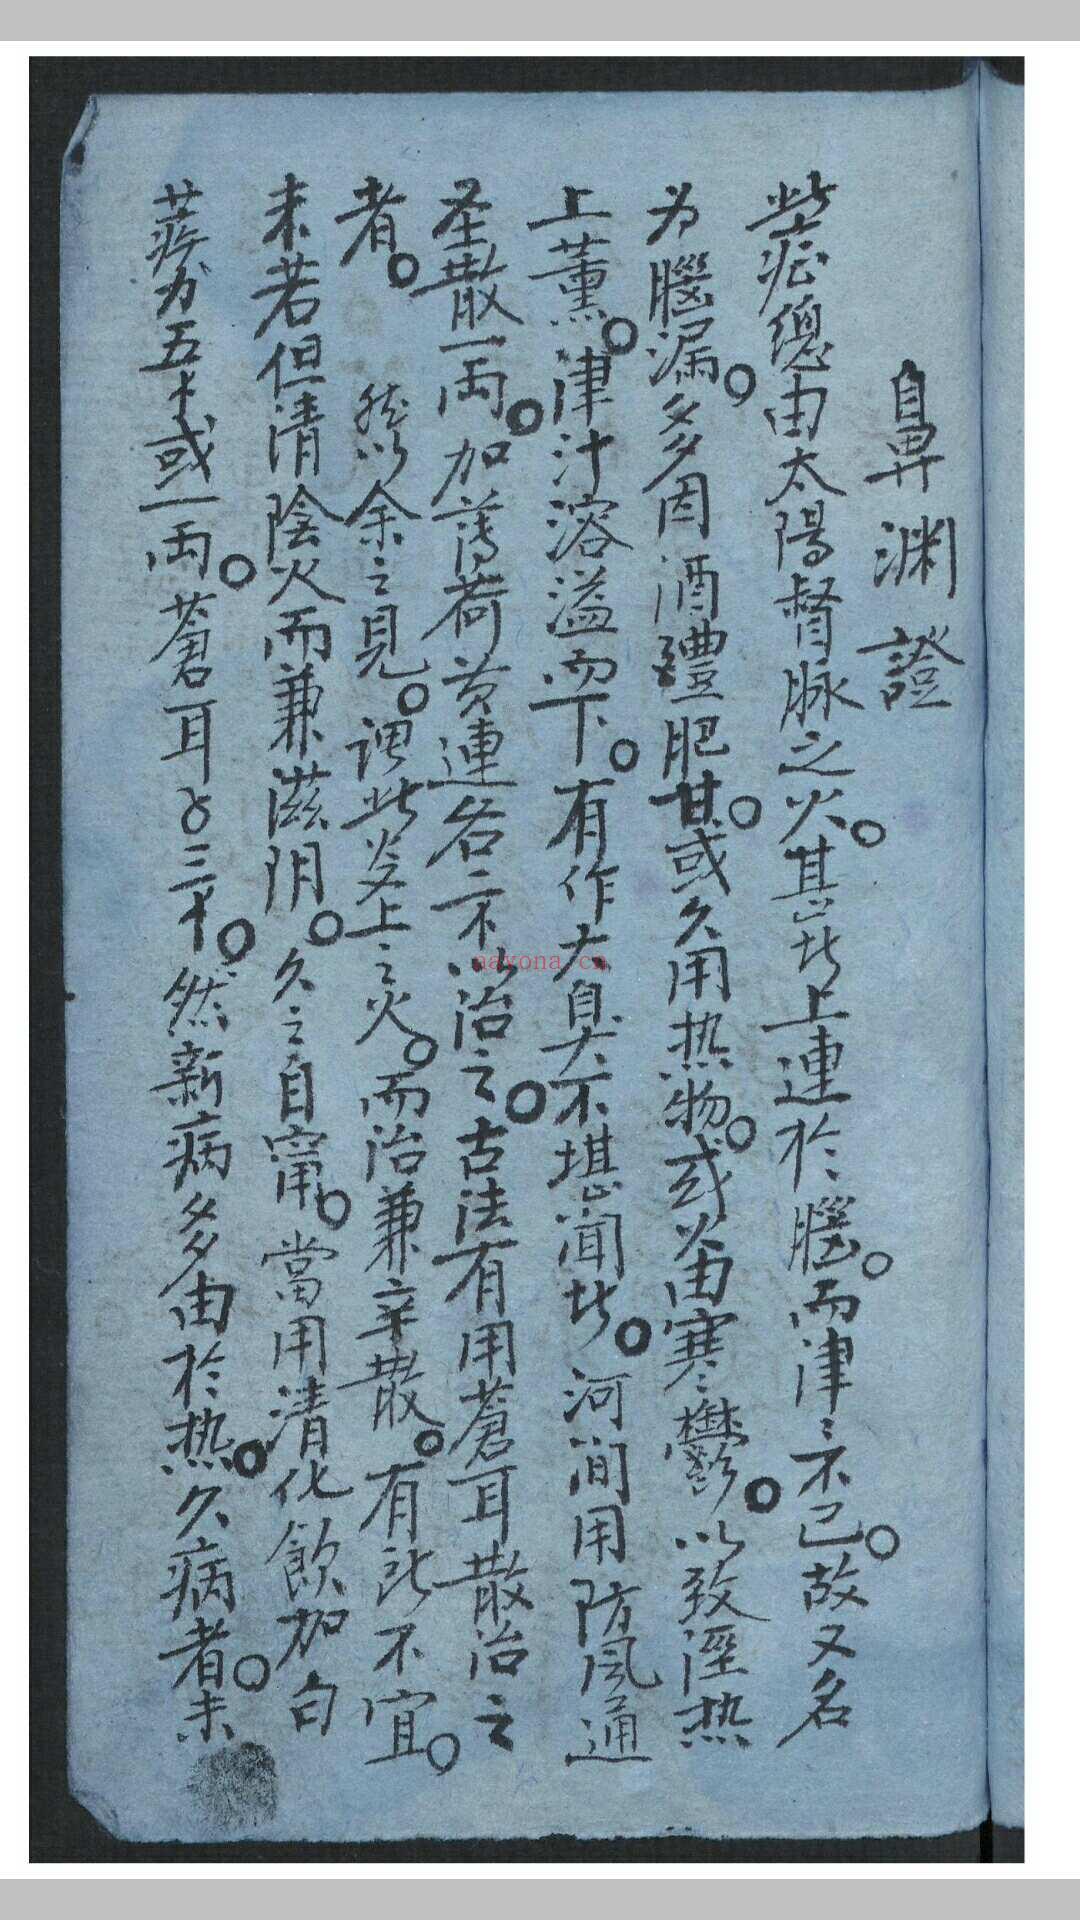 鼻淵證
此症總由太陽督脉之火。其㞐上連於腦。而津〻不已。故又名
为腦漏。多因酒醴肥甘。或久用热物。或火由寒鬱。以致溼热
上薰。津汁溶溢而下。有作大臭不堪聞㞐。河间用防风通
圣散一両。加薄荷黄連各二不以治之。古法有用蒼耳散治之
者。然以余之見。谓此炎上之火。而治兼辛散。有所不宜。
未若但清陰火而兼滋阴。久之自甯。當用清化飲加白
蒺为五十或一両。蒼耳子三十。然新病多由於热。久病者未
aaxona.cn